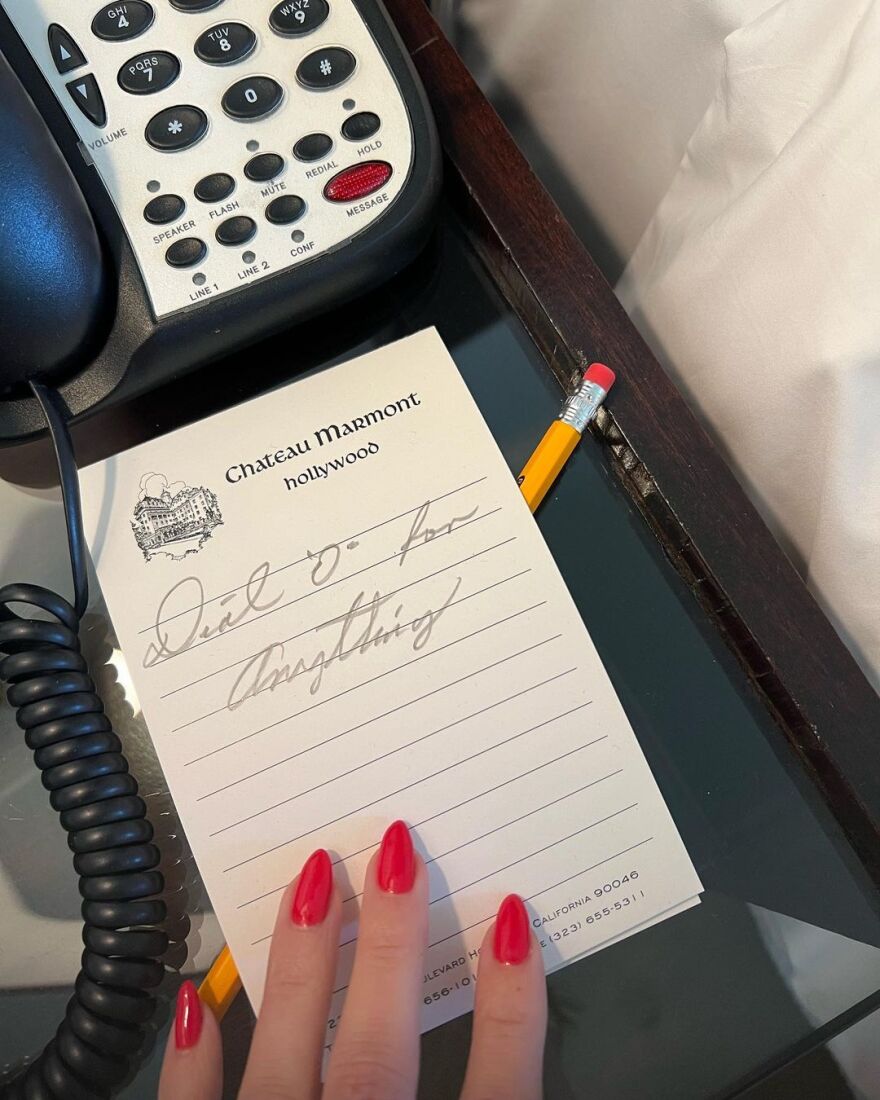 GHI 4
WXYZ 9
PQRS 7
TUV 8
* 0 #
VOLUME
SPEAKER FLASH MUTE REDIAL HOLD
LINE 1 LINE 2 CONF MESSAGE
Chateau Marmont
hollywood
Dial "0" for
Anything
CALIFORNIA 90046
656-101 E (323) 655-5311